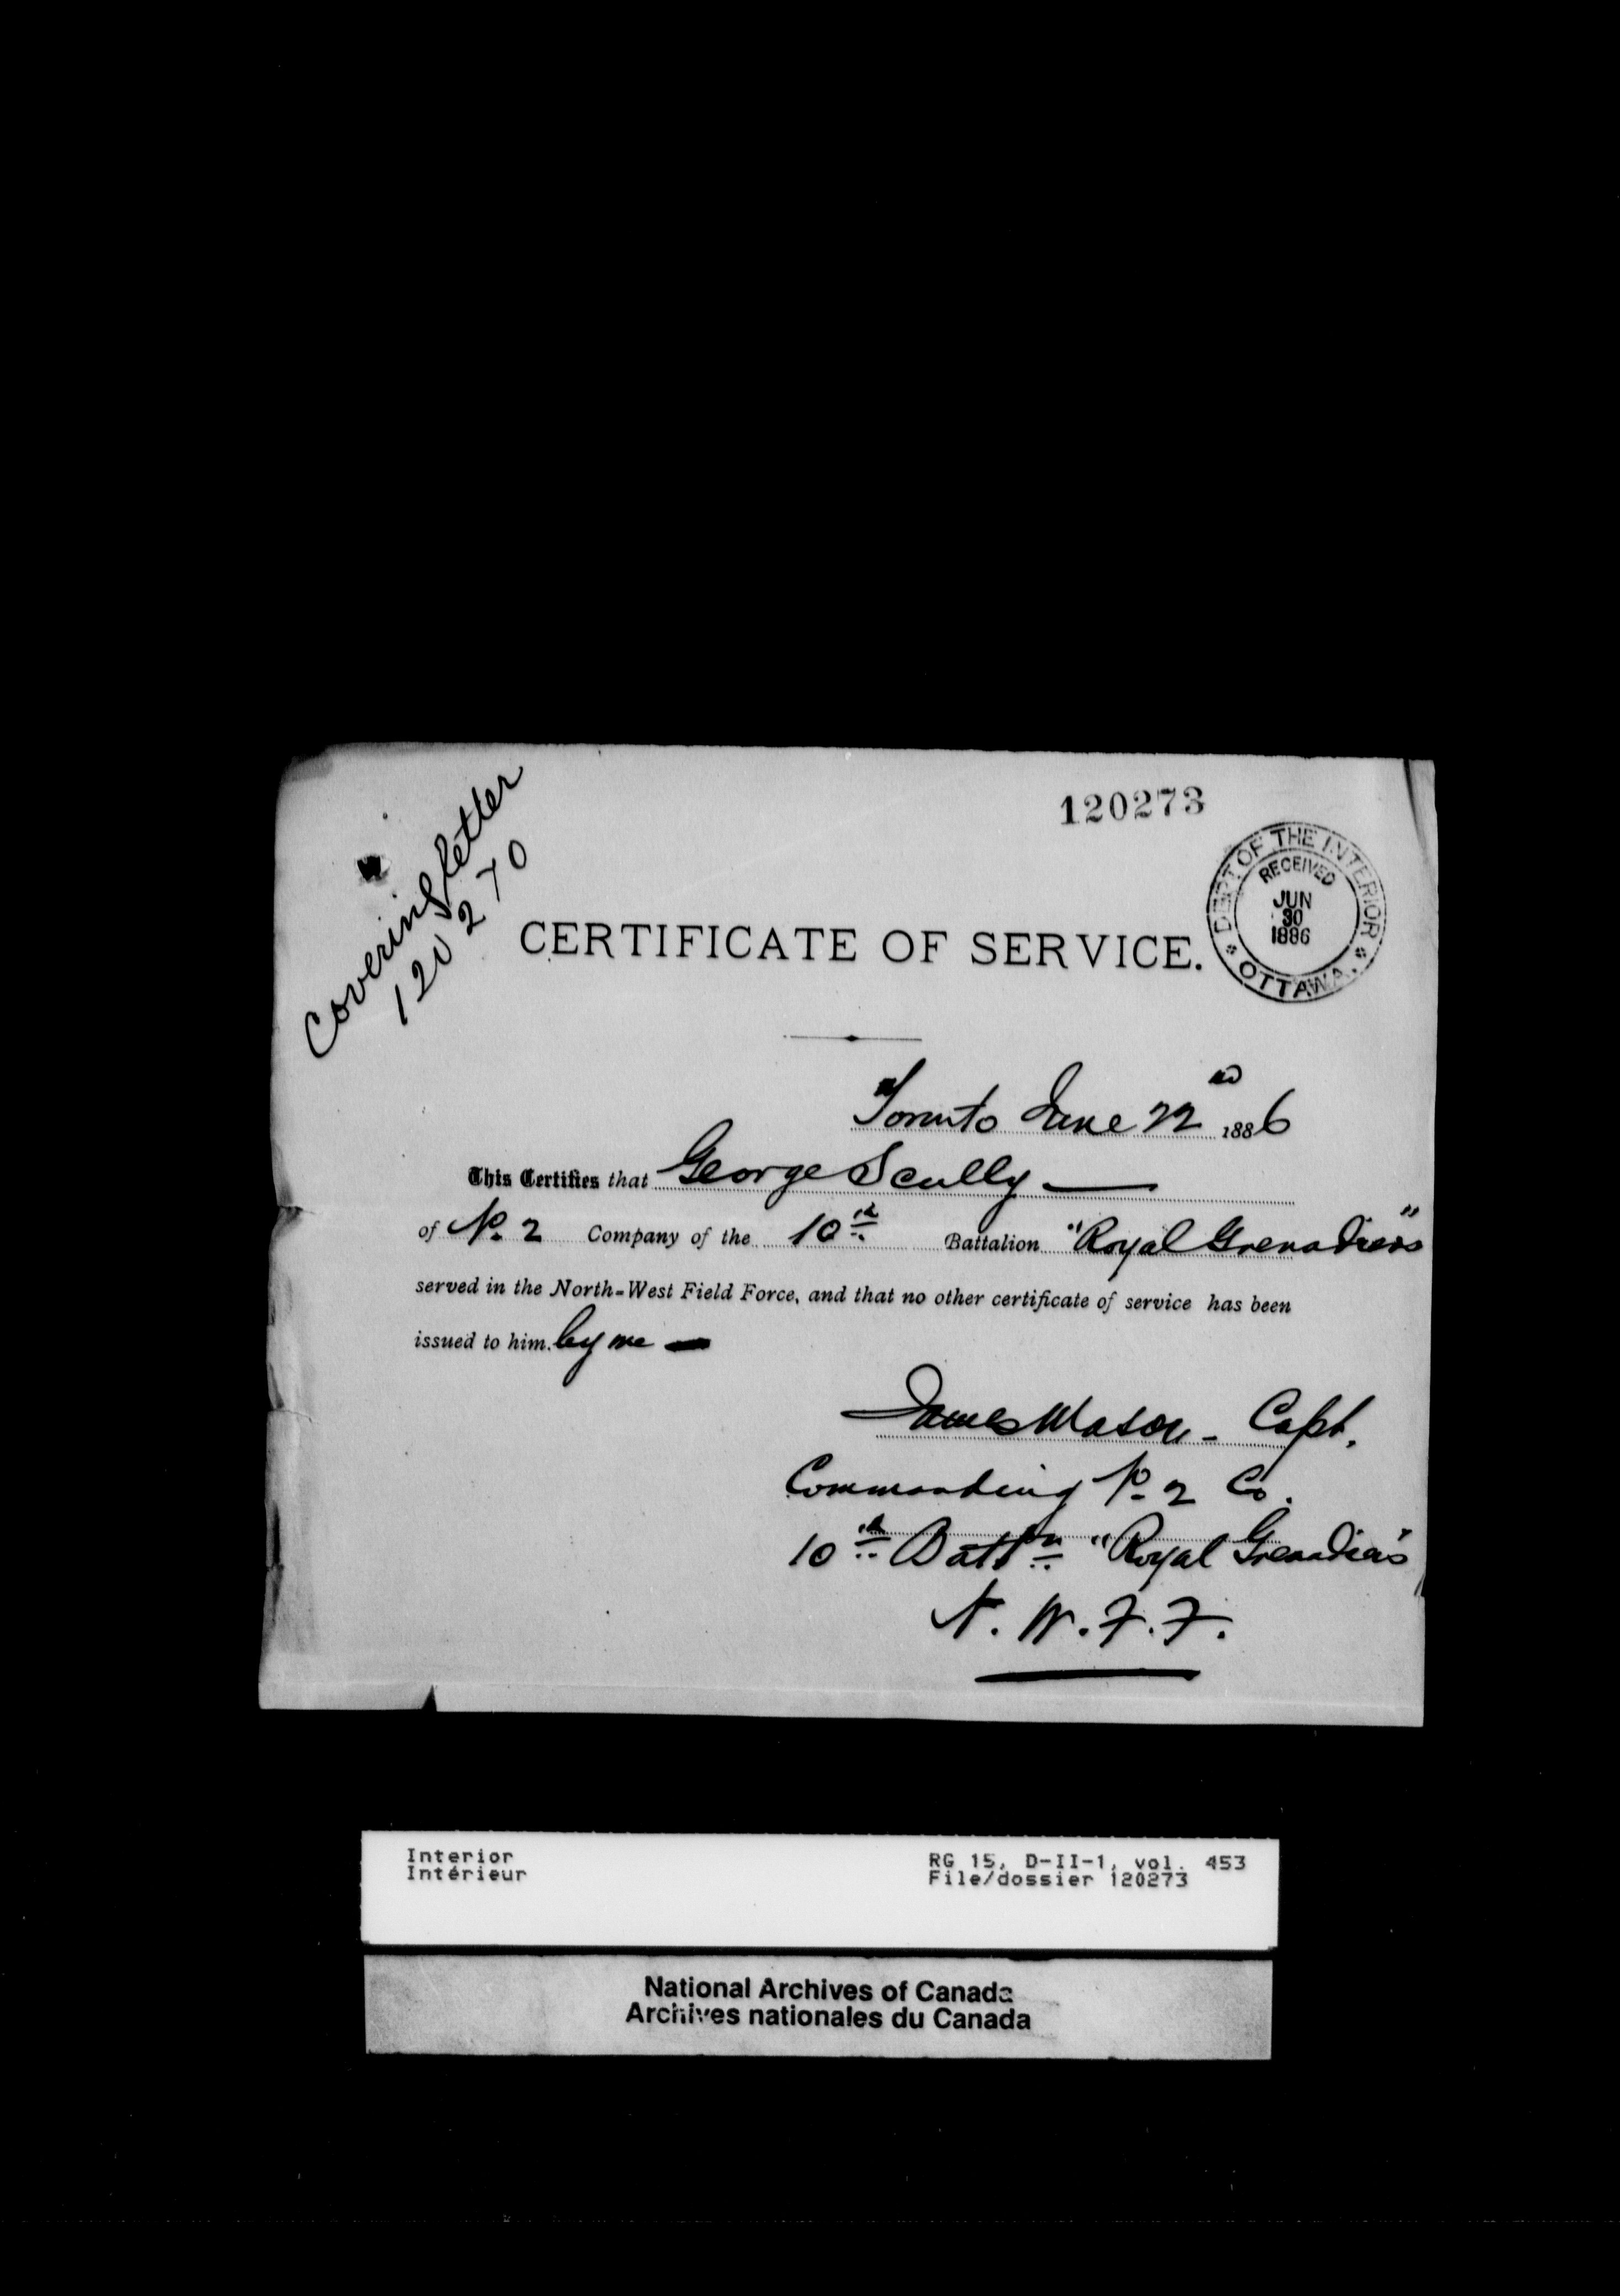 Covering letter
120270
120273
DEPT OF THE INTERIOR
RECEIVED
JUN
30
1886
OTTAWA.
CERTIFICATE OF SERVICE.
Toronto June 22nd 1886
This Certifies that George Scully
of No. 2 Company of the 10th Battalion "Royal Grenadiers"
served in the North-West Field Force, and that no other certificate of service has been
issued to him. by me
James Mason - Capt.
Commanding No. 2 Co.
10th Battn "Royal Grenadiers"
N. W. F. F.
Interior
Intérieur
RG 15, D-II-1, vol. 453
File/dossier 120273
National Archives of Canada
Archives nationales du Canada